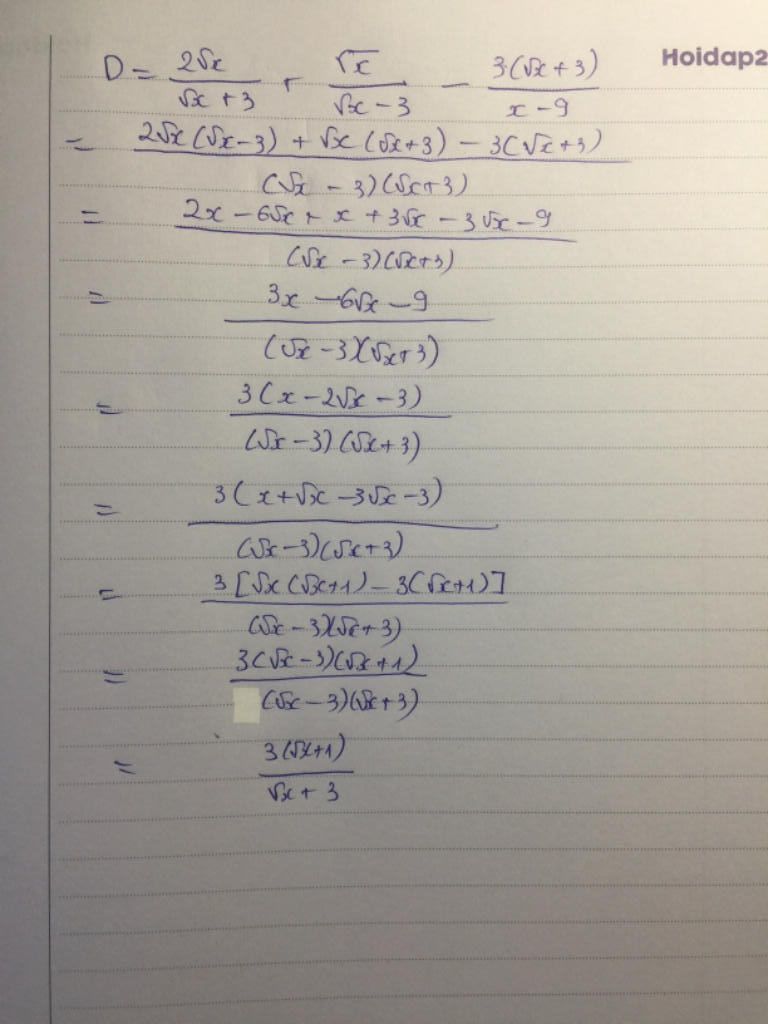 Hoidap2
D = 2√x/(√x + 3) + √x/(√x − 3) − 3(√x + 3)/(x − 9)
= (2√x(√x−3) + √x(√x+3) − 3(√x+3))/((√x − 3)(√x+3))
= (2x − 6√x + x + 3√x − 3√x − 9)/((√x − 3)(√x+3))
= (3x − 6√x − 9)/((√x − 3)(√x+3))
= 3(x − 2√x − 3)/((√x − 3)(√x+3))
= 3(x + √x − 3√x − 3)/((√x−3)(√x+3))
= 3[√x(√x+1) − 3(√x+1)]/((√x − 3)(√x+3))
= 3(√x − 3)(√x+1)/((√x − 3)(√x+3))
= 3(√x+1)/(√x + 3)